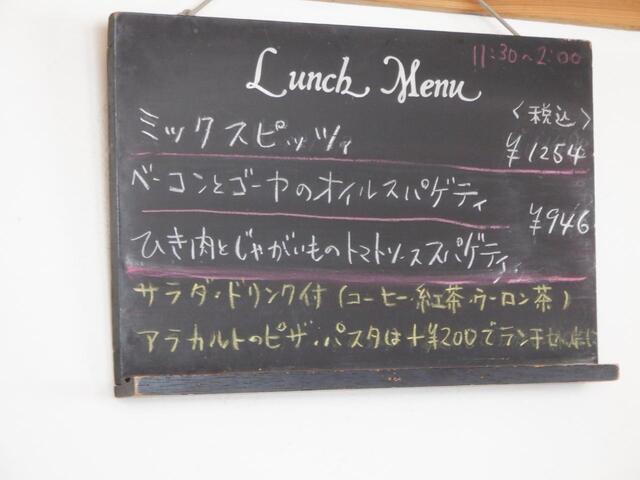 11:30~2:00
Lunch Menu
〈税込〉
ミックスピッツァ ¥1254
ベーコンとゴーヤのオイルスパゲティ
¥946
ひき肉とじゃがいものトマトソーススパゲティ
サラダ・ドリンク付(コーヒー・紅茶・ウーロン茶)
アラカルトのピザ・パスタは+¥200でランチセット